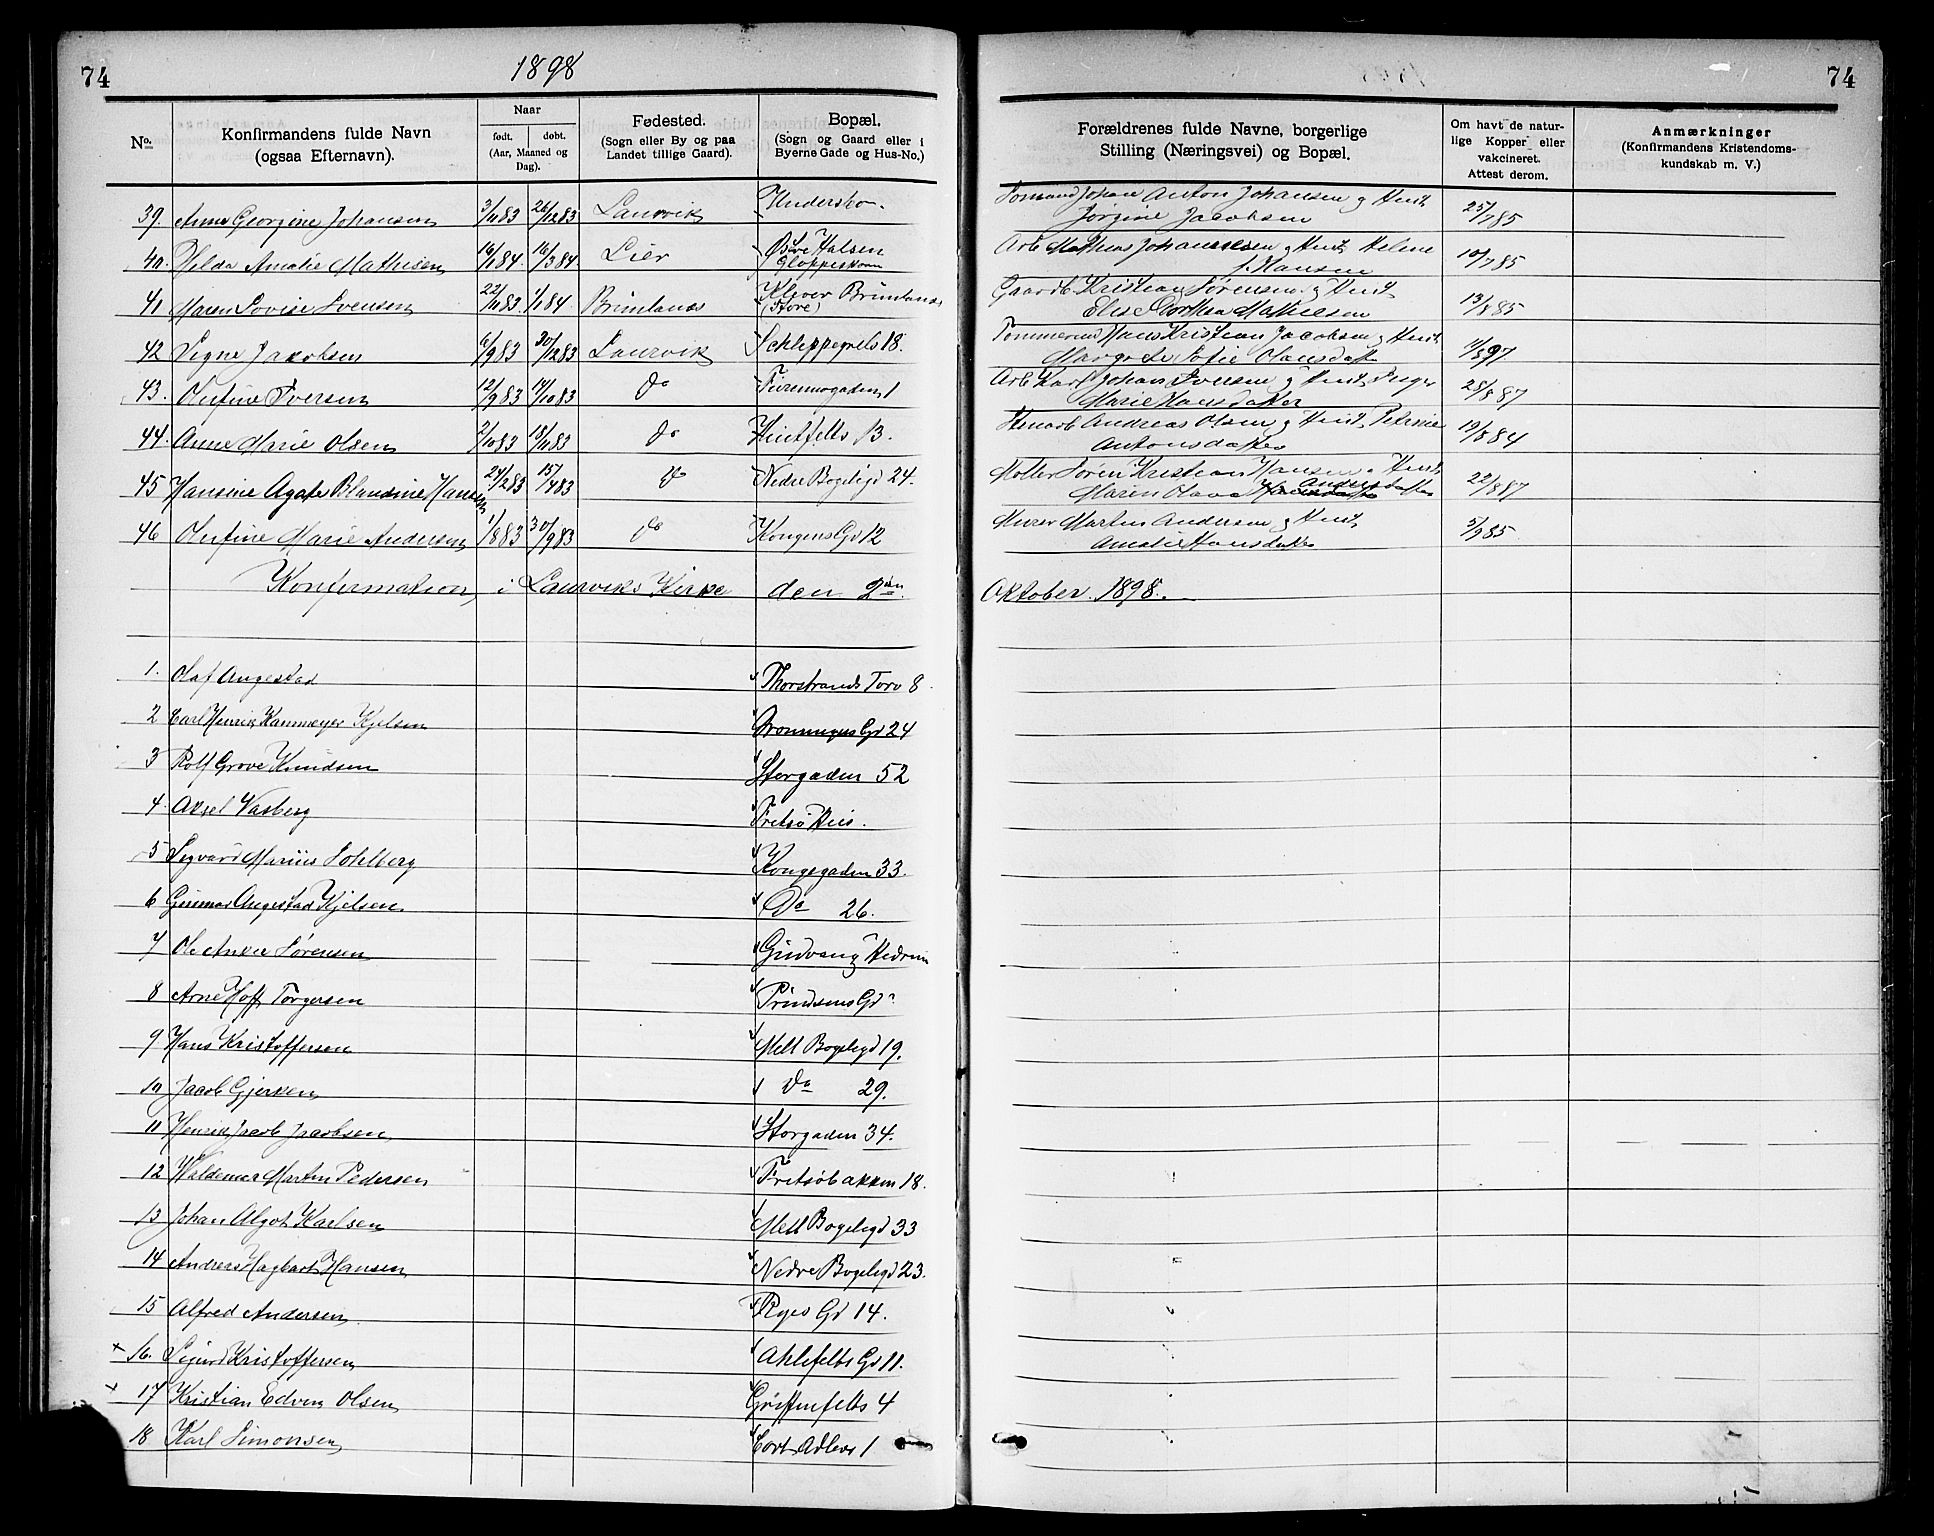 74
1898
74
No.
Konfirmandens fulde Navn
(ogsaa Efternavn).
Naar
født.
døbt.
(Aar, Maaned og
Dag).
Fødested.
(Sogn eller By og paa
Landet tillige Gaard).
Bopæl.
(Sogn og Gaard eller i
Byerne Gade og Hus-No.)
Forældrenes fulde Navne, borgerlige
Stilling (Næringsvei) og Bopæl.
Om havt de natur-
lige Kopper eller
vakcineret.
Attest derom.
Anmærkninger
(Konfirmandens Kristendoms-
kundskab m. V.)
39. Anna Georgine Johansen 3/11 83 26/12 83 Laurvik Johan Anton Johansen og Hust
Jørgine Jacobsen 25/7 85
40. Hilda Amalie Mathisen 16/1 84. 16/3 84 Lier Øvre Halsen
Arb Mathias Johannesen og Hust Helene
f. Hansen 10/7 85
41 Maren Lovise Svensen 22/11 83 1/1 84. Brunlanæs Klever Brunlanæs
(Store)
Gaardb. Kristian Sørensen og Hust
Elise Dorthea Mathiesen 13/8 85
42 Signe Jakobsen 6/9 83 30/12 83 Laurvik Schleppegrels 18.
Tømmermd Hans Kristian Jacobsen og Hust
Margrete Sofie Olausdatter 11/5 97
43. Olufine Iversen 12/9 83 14/10 83 Do 1
Arb Karl Johan Iversen og Hust Inger
Marie Hansdatter 28/8 87
44. Anne Marie Olsen 2/10 83 18/11 83 Do
Stenarb Andreas Olsen og Hust Petrine
Antonsdatter 19/8 84
45 Hansine Agate Blandine Hansen 24/2 83 15/4 83 Do Nedre Bøgeligd 24.
Møller Søren Kristian Hansen og Hust
Maren Olava Andersdatter 22/8 87
46 Olufine Marie Andersen 1/8 83 30/9 83 Do Kongens Gd 12
Murer Martin Andersen og Hust
Amalie Hansdatter 5/9 85
Konfirmation i Laurviks Kirke den 2den Oktober. 1898.
1. Olaf Angestad Thorstrands Torv 8.
2 Carl Henrik Kammeyer Kjelsen Dronningens Gd 24
3 Rolf Grove Knudsen Storgaden 52
4. Aksel Vasberg Fritsø Hus.
5 Sigvard Marius Sohlberg Kongegaden 33.
6 Gunnar Angestad Kjelsen Do 26.
7 Ole Anker Sørensen Hedrum
8 Arne Hoff Torgersen Prindsens Gd ?
9 Hans Kristoffersen Mell Bøgeligd 19.
10 Jacob Gjerken Do 29.
11 Henrik Jacob Jacobsen Storgaden 34.
12 Waldemar Martin Pedersen Fritsøbakken 18.
13 Johan Algot Karlsen Mell Bøgeligd 33
14 Andreas Hagbart Hansen Nedre Bøgeligd 23.
15 Alfred Andersen Ryes Gd 14.
+ 16. Sigurd Kristoffersen Ahlefelts Gd 11.
+ 17 Kristian Edvin Olsen Griffenfelts 4
18 Karl Simonsen Cort Adlers 1